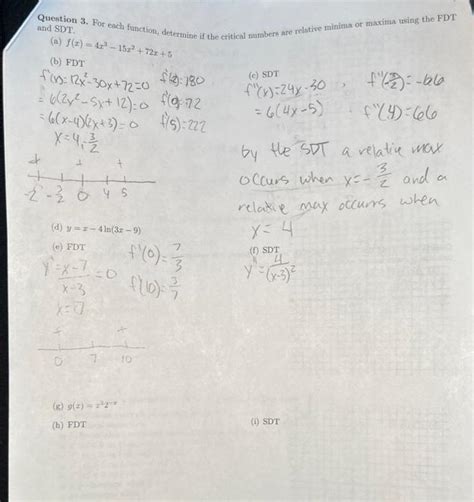 Question 3. For each function, determine if the critical numbers are relative minima or maxima using the FDT
and SDT.
(a) f(x) = 4x³ − 15x² + 72x + 5
(b) FDT
f'(x)=12x²-30x+72=0
= 6(2x²-5x+12)=0
=6(x-4)(2x+3)=0
x=4, 3/2
f'(2)=180
f'(0)=72
f'(5)=222
+ + +
-2 -3/2 0 4 5
(c) SDT
f''(x)=24x-30
= 6(4x-5)
f''(-3/2)=-66
f''(4)=66
by the SDT a relative max
occurs when x=-3/2 and a
relative max occurs when
x=4
(d) y = x − 4 ln(3x − 9)
(e) FDT
y'= x-7/x-3 =0
x=7
f'(0)= 7/3
f'(10)= 3/7
+ +
0 7 10
(f) SDT
y''= 4/(x-3)²
(g) g(x) = x³2⁻ˣ
(h) FDT
(i) SDT